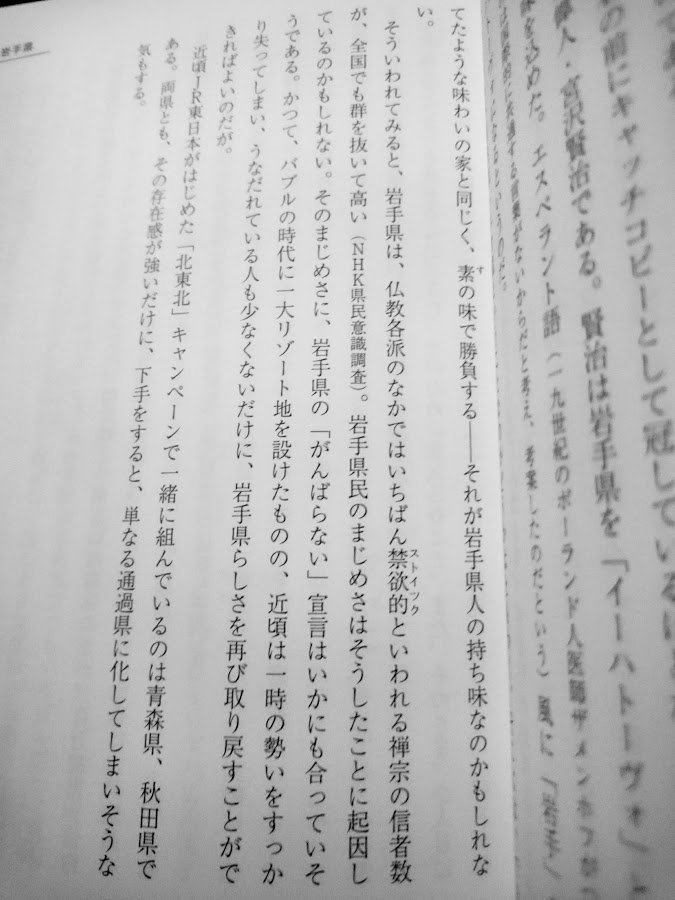 の前にキャッチコピーとして冠している
人・宮沢賢治である。賢治は岩手県を「イーハトーヴォ」
を込めた。エスペラント語（一九世紀のポーランド人医師ザメンホフが
に共通する言葉がないからだと考え、考案したのだという）風に「岩手」
てたような味わいの家と同じく、素の味で勝負する——それが岩手県人の持ち味なのかもしれな
す
い。
そういわれてみると、岩手県は、仏教各派のなかではいちばん禁欲的といわれる禅宗の信者数
ストイック
が、全国でも群を抜いて高い（NHK県民意識調査）。岩手県民のまじめさはそうしたことに起因し
ているのかもしれない。そのまじめさに、岩手県の「がんばらない」宣言はいかにも合っていそ
うである。かつて、バブルの時代に一大リゾート地を設けたものの、近頃は一時の勢いをすっか
り失ってしまい、うなだれている人も少なくないだけに、岩手県らしさを再び取り戻すことがで
きればよいのだが。
近頃JR東日本がはじめた「北東北」キャンペーンで一緒に組んでいるのは青森県、秋田県で
ある。両県とも、その存在感が強いだけに、下手をすると、単なる通過県に化してしまいそうな
気もする。
岩手県